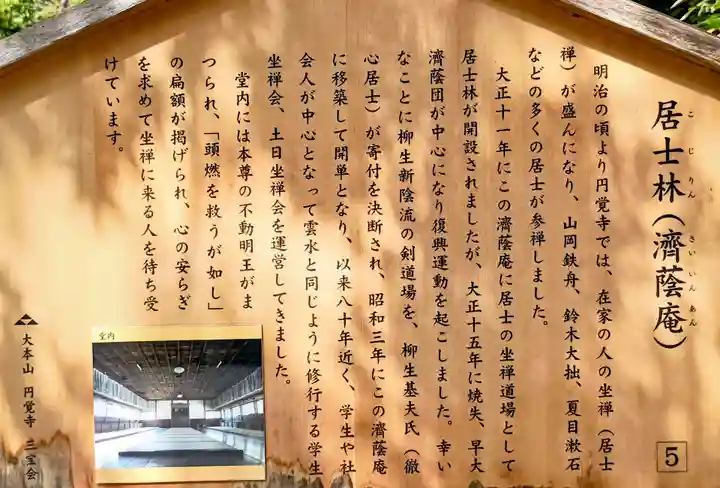 居士林(濟蔭庵)
こ じ りん さい いん あん
明治の頃より円覚寺では、在家の人の坐禅(居士
禅)が盛んになり、山岡鉄舟、鈴木大拙、夏目漱石
などの多くの居士が参禅しました。
大正十一年にこの濟蔭庵に居士の坐禅道場として
居士林が開設されましたが、大正十五年に焼失、早大
濟蔭団が中心になり復興運動を起こしました。幸い
なことに柳生新陰流の剣道場を、柳生基夫氏(徹
心居士)が寄付を決断され、昭和三年にこの濟蔭庵
に移築して開単となり、以来八十年近く、学生や社
会人が中心となって雲水と同じように修行する学生
坐禅会、土日坐禅会を運営してきました。
堂内には本尊の不動明王がま
つられ、「頭燃を救うが如し」
の扁額が掲げられ、心の安らぎ
を求めて坐禅に来る人を待ち受
けています。
堂内
大本山 円覚寺 三宝会
5